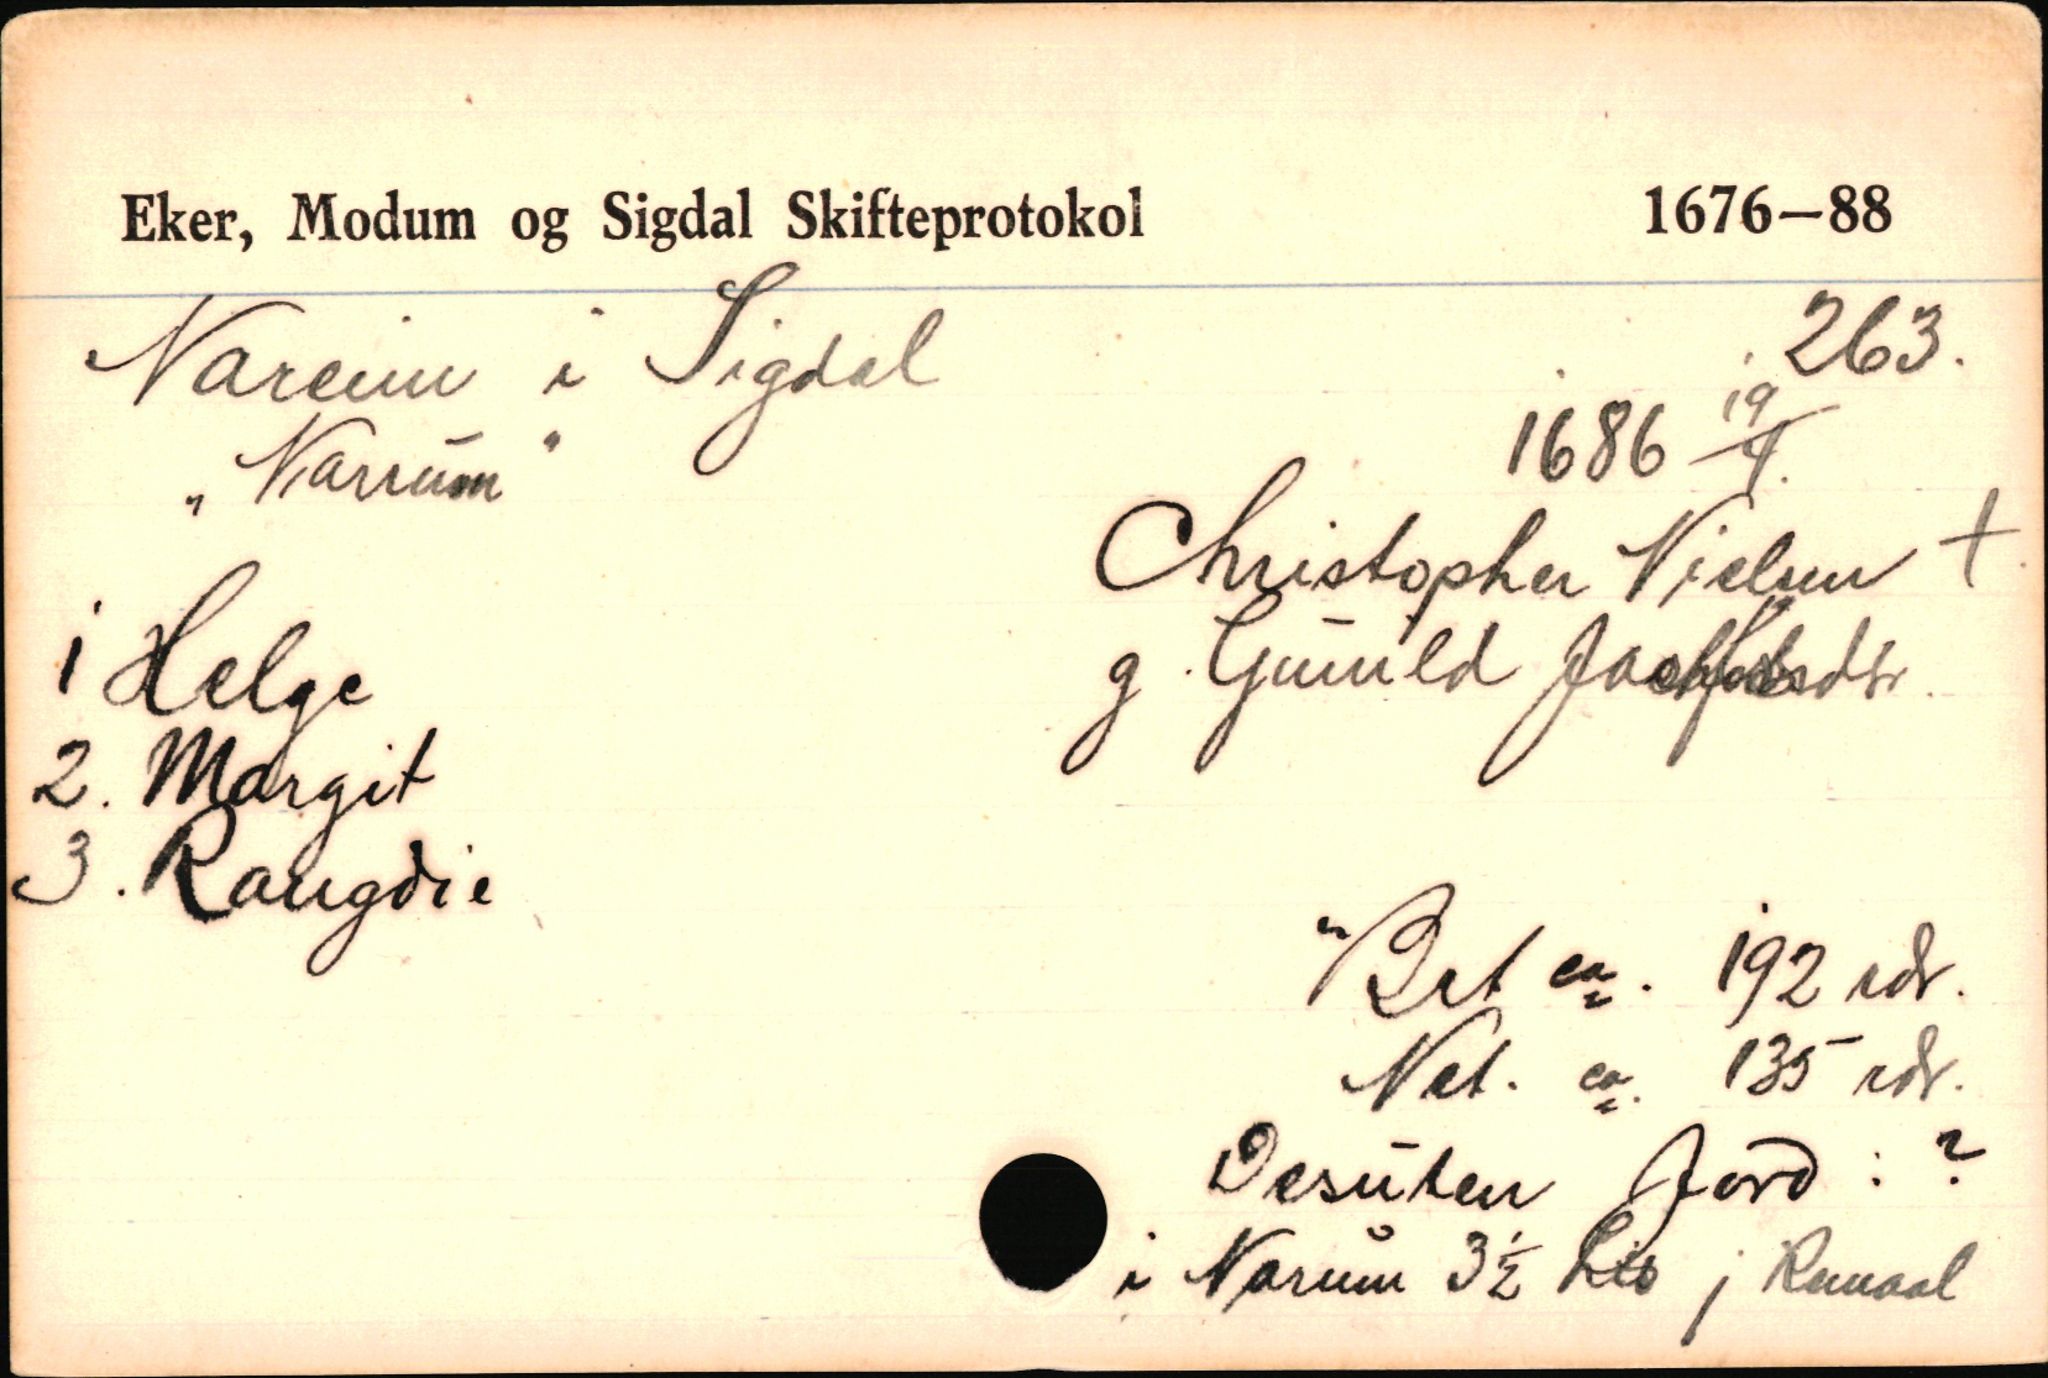 Eker, Modum og Sigdal Skifteprotokol 1676—88
Nareim i Sigdal 263.
„Narrum"
1686 19/4.
Christopher Nielsen †
g. Gunild
1 Helge
2. Margit
3. Rangdie
Brt ca. 192 rdr.
Net. ca. 135 rdr.
Desuten Jord : ?
i Narum 3½ Lis j